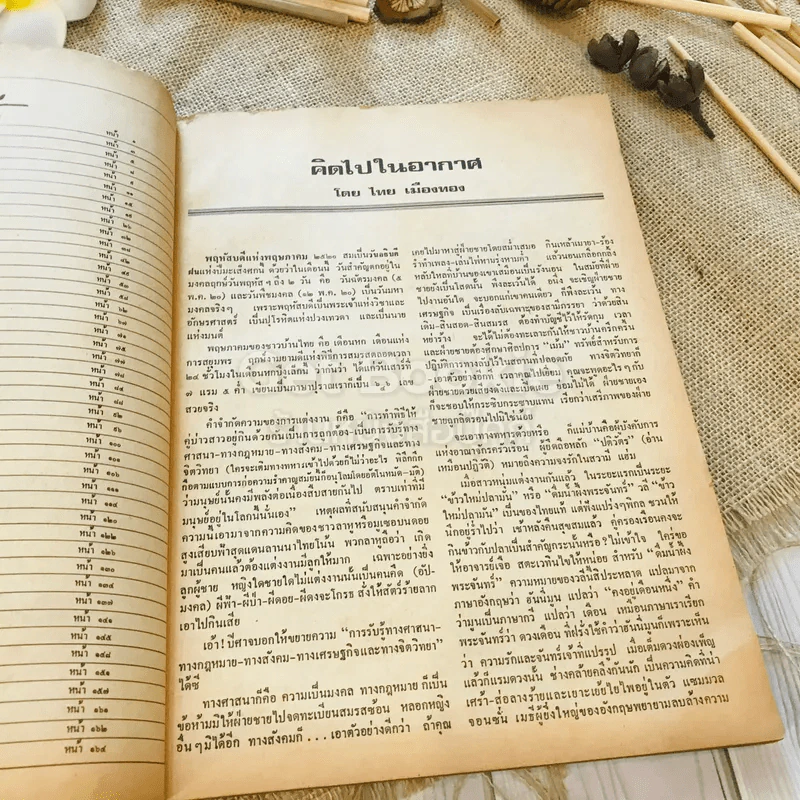 หน้า ๑
หน้า ๓
หน้า ๕
หน้า
หน้า ๑๑
หน้า ๑๕
หน้า ๑๙
หน้า ๒๖
หน้า ๓๒
หน้า ๔๒
หน้า ๔๕
หน้า ๔๙
หน้า ๕๔
หน้า ๕๘
หน้า
หน้า ๗๑
หน้า ๗๕
หน้า ๗๗
หน้า
หน้า ๘๕
หน้า ๘๘
หน้า ๙๒
หน้า ๙๖
หน้า ๑๐๐
หน้า ๑๐๑
หน้า ๑๐๖
หน้า ๑๑๑
หน้า ๑๑๔
หน้า ๑๒๐
หน้า ๑๒๒
หน้า ๑๒๖
หน้า ๑๓๐
หน้า ๑๓๔
หน้า ๑๓๗
หน้า ๑๔๑
หน้า ๑๔๕
หน้า ๑๔๘
หน้า ๑๕๑
หน้า ๑๕๗
หน้า ๑๖๑
หน้า ๑๖๒
หน้า ๑๖๔
คิดไปในอากาศ
โดย ไทย เมืองทอง
พฤหัสบดีแห่งพฤษภาคม ๒๕๒๐ สมเป็นวันอธิบดี
ฝนแห่งปีมะเส็งศกนี้ ด้วยว่าในเดือนนี้ วันสำคัญตกอยู่ใน
มงคลฤกษ์วันพฤหัสฯ ถึง ๒ วัน คือ วันฉัตรมงคล (๕
พ.ค. ๒๐) และวันพืชมงคล (๑๒ พ.ค. ๒๐) เป็นวันมหา
มงคลจริงๆ เพราะพฤหัสบดีเป็นพระเจ้าแห่งวิชาและ
อักษรศาสตร์ เป็นปุโรหิตแห่งปวงเทวดา และเป็นนาย
แห่งมนต์
พฤษภาคมของชาวบ้านไทย คือ เดือนหก เดือนแห่ง
การสุมภพร ฤกษ์งามยามดีแห่งพิธีการสมรสตลอดเวลา
๒๔ ชั่วโมงในเดือนหกปีงูเล็กนี้ ว่ากันว่า ได้แก่วันเสาร์ที่
๗ แรม ๕ ค่ำ เขียนเป็นภาษาปุราณรากเป็น เลข
สวยจริง
คำจำกัดความของการแต่งงาน ก็คือ “การทำพิธีให้
คู่บ่าวสาวอยู่กินด้วยกันเป็นการถูกต้อง-เป็นการรับรู้ทาง
ศาสนา-ทางกฎหมาย-ทางสังคม-ทางเศรษฐกิจและทาง
จิตวิทยา (ใครจะเติมทางททารเข้าไปด้วยก็ไม่ว่าอะไร
ว่ามนุษย์นั้นคงมีที่พลังต่อเนื่องสืบสายกันไป ตราบเท่าที่มี
มนุษย์อยู่ในโลกนี้นั่นเอง” เหตุผลที่สนับสนุนคำจำกัด
ความนี้เอามาจากความคิดของชาวลาหู่หรือมูเซอบนดอย
สูงเสียบฟ้าสุดแดนลานนาไทยโน้น พวกลาหู่ถือว่า เกิด
มาเป็นคนแล้วต้องแต่งงานมีลูกให้มาก เฉพาะอย่างยิ่ง
ลูกผู้ชาย หญิงใดชายใดไม่แต่งงานนั้นเป็นคนคีด (อัป-
มงคล) ผีฟ้า-ผีป่า-ผีดอย-ผีดงจะโกรธ สั่งให้สัตว์ร้ายลาก
เอาไปกินเสีย
เอ้า! ปีศาจบอกให้ขยายความ “การรับรู้ทางศาสนา-
ทางกฎหมาย-ทางสังคม-ทางเศรษฐกิจและทางจิตวิทยา”
ได้ซี่
ทางศาสนาก็คือ ความเป็นมงคล ทางกฎหมาย ก็เป็น
ข้อห้ามมิให้ฝ่ายชายไปจดทะเบียนสมรสซ้อน หลอกหญิง
อื่นๆ มิได้อีก ทางสังคมก็ . . . เอาตัวอย่างดีกว่า ถ้าคุณ
เคยไปมาหาสู่ฝ่ายชายโดยสม่ำเสมอ กินเหล้าเมายา-ร้อง
รำทำเพลง-เล่นไพ่หามรุ่งหามค่ำ แล้วนอนเกลือกกลิ้ง
หลับใหลที่บ้านของเขาเสมือนเป็นรังนอน ในสมัยที่ฝ่าย
ชายยังเป็นโสดนั้น พึงละเว้นได้ อนึ่ง จะเชิญฝ่ายชาย
ไปงานอันใด จะบอกแก่เขาคนเดียว ก็พึงละเว้น ทาง
เศรษฐกิจ เป็นเรื่องลับเฉพาะของสามีภรรยา ว่าด้วยสิน
เดิม-สินสอด-สินสมรส ต้องทำบัญชีไว้ให้รัดกุม เวลา
หย่าร้าง จะได้ไม่ต้องทะเลาะกันให้ชาวบ้านครึกครื้น
และฝ่ายชายต้องศึกษาศิลปการ “เม้ม” ทรัพย์สำหรับการ
ปฏิบัติการทางลับไว้ในสถานที่ปลอดภัย ทางจิตวิทยาก็
เอาตัวอย่างอีกที เวลาคุณไปเยือน คุณจะพูดอะไรๆ กับ
ฝ่ายชายด้วยเสียงดังและเปิดเผย ย่อมไม่ได้ ฝ่ายชายเอง
ก็จะชอบให้กระซิบกระซาบแทน เรียกว่าเสรีภาพของฝ่าย
ชายถูกลิดรอนไปมิใช่น้อย
จะเอาทางทหารด้วยหรือ ก็แม่บ้านคือผู้บังคับการ
แห่งอาณาจักรครัวเรือน ผู้ยึดถือหลัก “ปติวัตร” (อ่าน
เหมือนปฏิวัติ) หมายถึงความจงรักในสวามี แฮ่ม
เมื่อสาวหนุ่มแต่งงานกันแล้ว ในระยะแรกผึ้งระยะ
“ข้าวใหม่ปลามัน” หรือ “ดื่มน้ำผึ้งพระจันทร์” วลี “ข้าว
ใหม่ปลามัน” เป็นของไทยแท้ แต่ฟังแปร่งๆ พิกล ชวนให้
นึกอยู่ร่ำไปว่า เช้าหลังคืนสุขสมแล้ว คู่ครองเรือนคงจะ
กินข้าวกับปลาเป็นสำคัญกระนั้นหรือ? ไม่เข้าใจ ใครขอ
ให้อาจารย์เจือ สตะเวทินไขให้หน่อย สำหรับ “ดื่มน้ำผึ้ง
พระจันทร์” ความหมายของวลีนี้สิประหลาด แปลมาจาก
ภาษาอังกฤษว่า ฮันนี่มูน แปลว่า “คงอยู่เดือนหนึ่ง” คำ
ว่ามูนเป็นภาษากวี แปลว่า เดือน เหมือนภาษาเราเรียก
พระจันทร์ว่า ดวงเดือน ที่ฝรั่งใช้คำว่าฮันนี่มูนก็เพราะเห็น
ว่า ความรักและจันทร์เจ้าที่แปรรูป เมื่อเต็มดวงผ่องเพ็ญ
แล้วก็แรมดวงนั้น ช่างคล้ายคลึงกันนัก เป็นความคิดที่น่า
เศร้า-ส่อลางร้ายและเยาะเย้ยไยไพอยู่ในตัว แซมมวล
จอนซั่น เมธีผู้ยิ่งใหญ่ของอังกฤษพยายามลบล้างความ